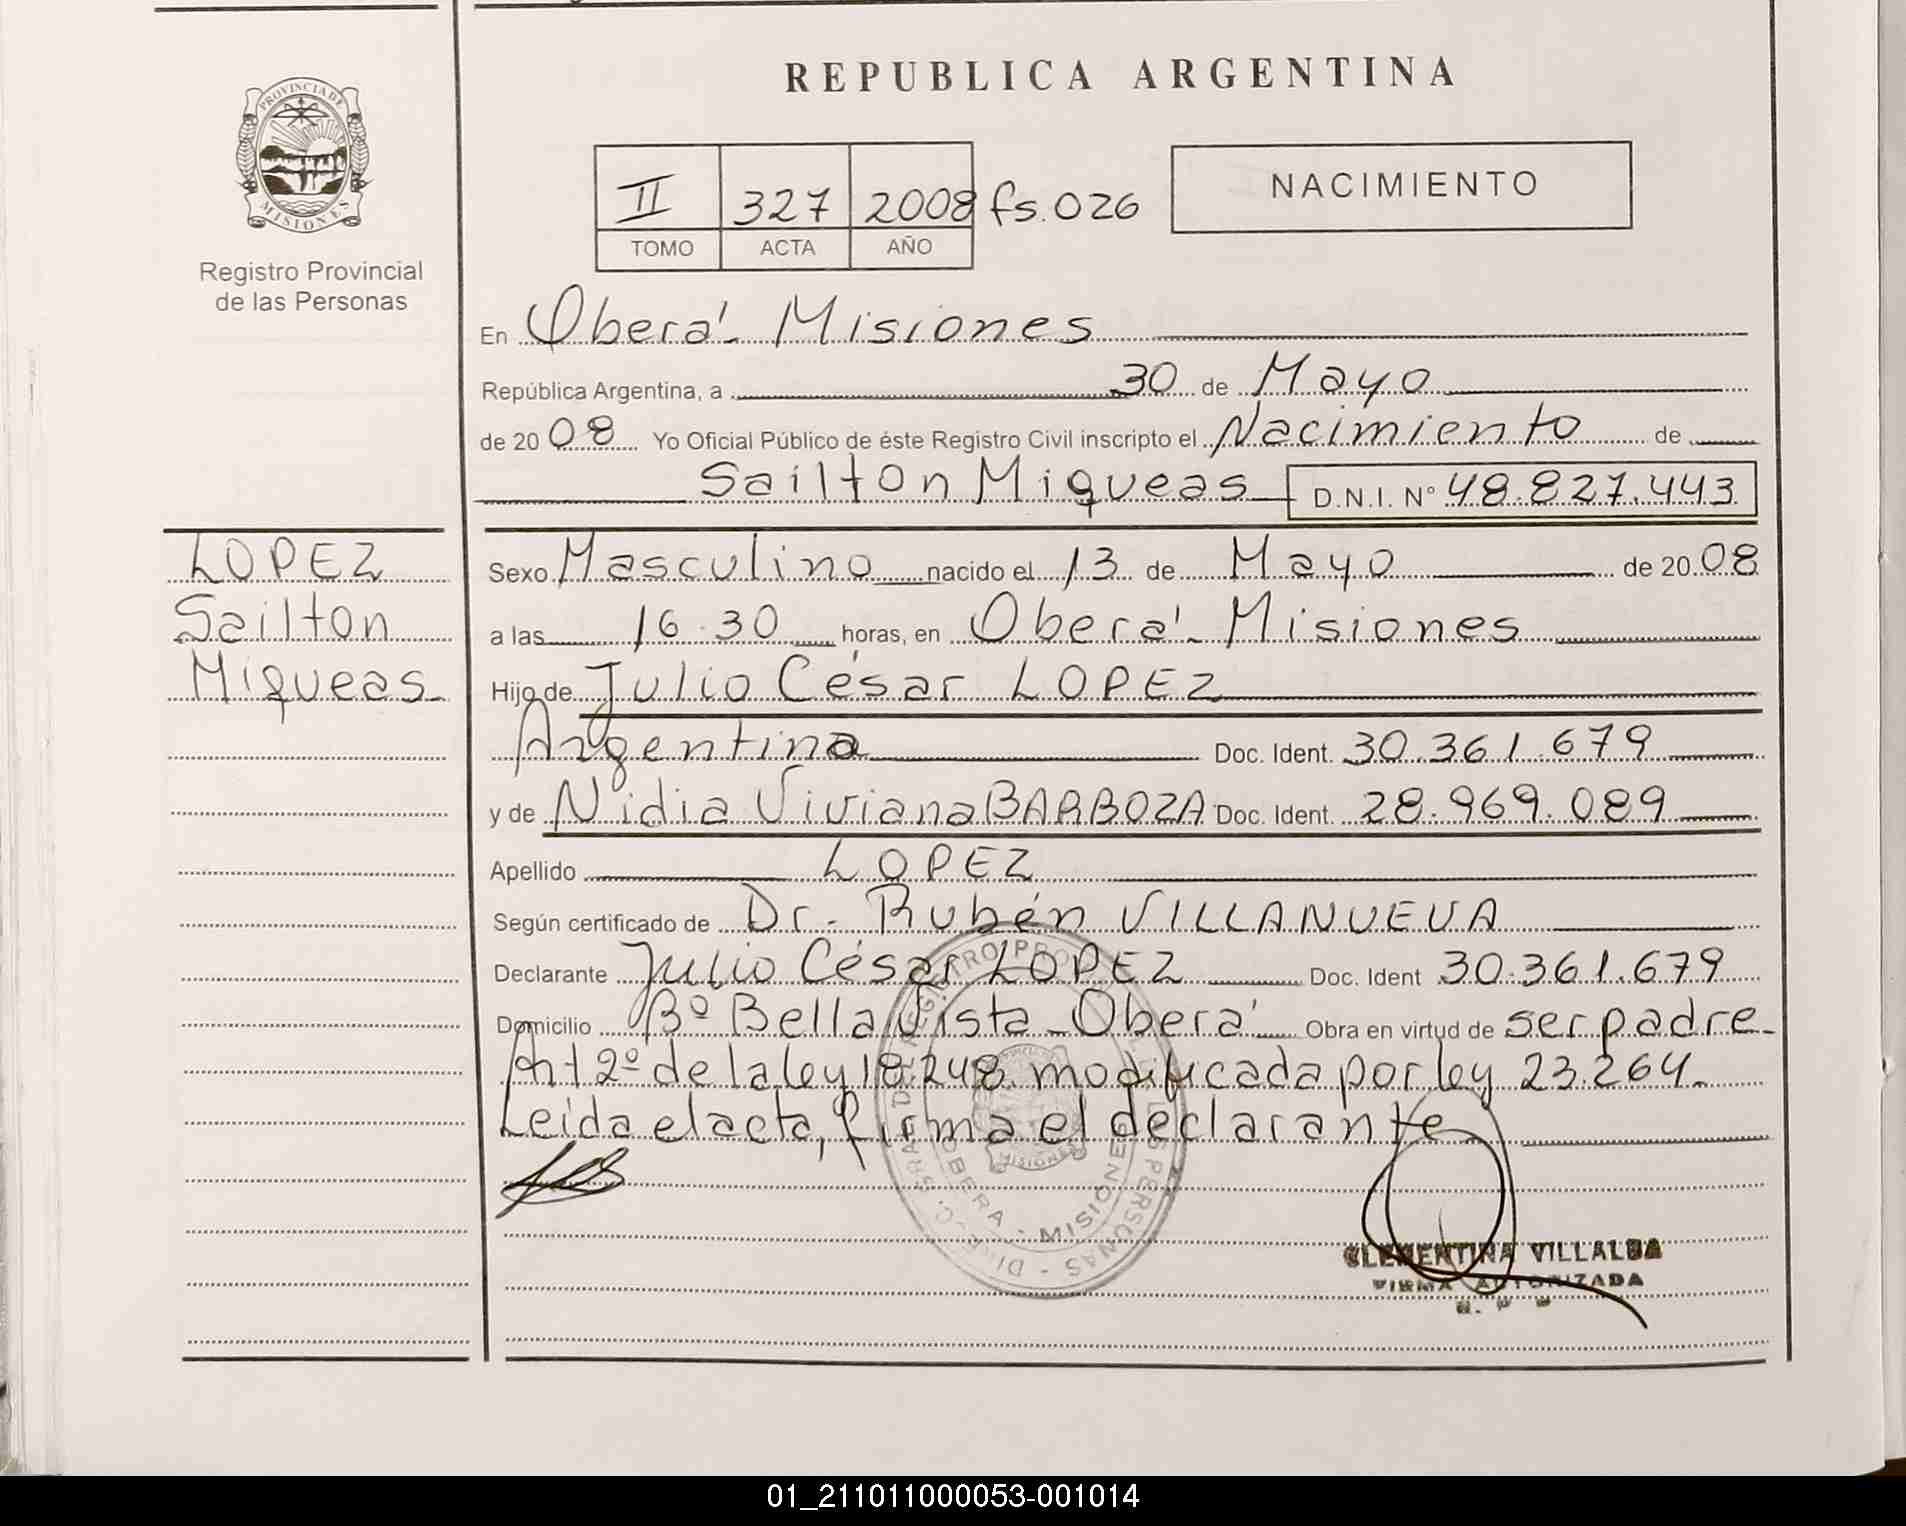 REPUBLICA ARGENTINA
PROVINCIA DE
MISIONES
Registro Provincial
de las Personas
II 327 2008 fs. 026
TOMO ACTA AÑO
NACIMIENTO
En Oberá - Misiones
República Argentina, a 30 de Mayo
de 2008 Yo Oficial Público de éste Registro Civil inscripto el Nacimiento de
Sailton Miqueas D.N.I. Nº 48.827.443
LOPEZ
Sailton
Miqueas
Sexo Masculino nacido el 13 de Mayo de 2008
a las 16.30 horas, en Oberá - Misiones
Hijo de Julio César LOPEZ
Argentina Doc. Ident. 30.361.679
y de Nidia Viviana BARBOZA Doc. Ident. 28.969.089
Apellido LOPEZ
Según certificado de Dr. Rubén VILLANUEVA
Declarante Julio César LOPEZ Doc. Ident 30.361.679
Domicilio Bº Bella Vista - Oberá Obra en virtud de ser padre -
Art 2º de la ley 18.248 modificada por ley 23.264.
Leída el acta, firma el declarante
OBERA - MISIONES
CLEMENTINA VILLALBA
FIRMA AUTORIZADA
01_211011000053-001014